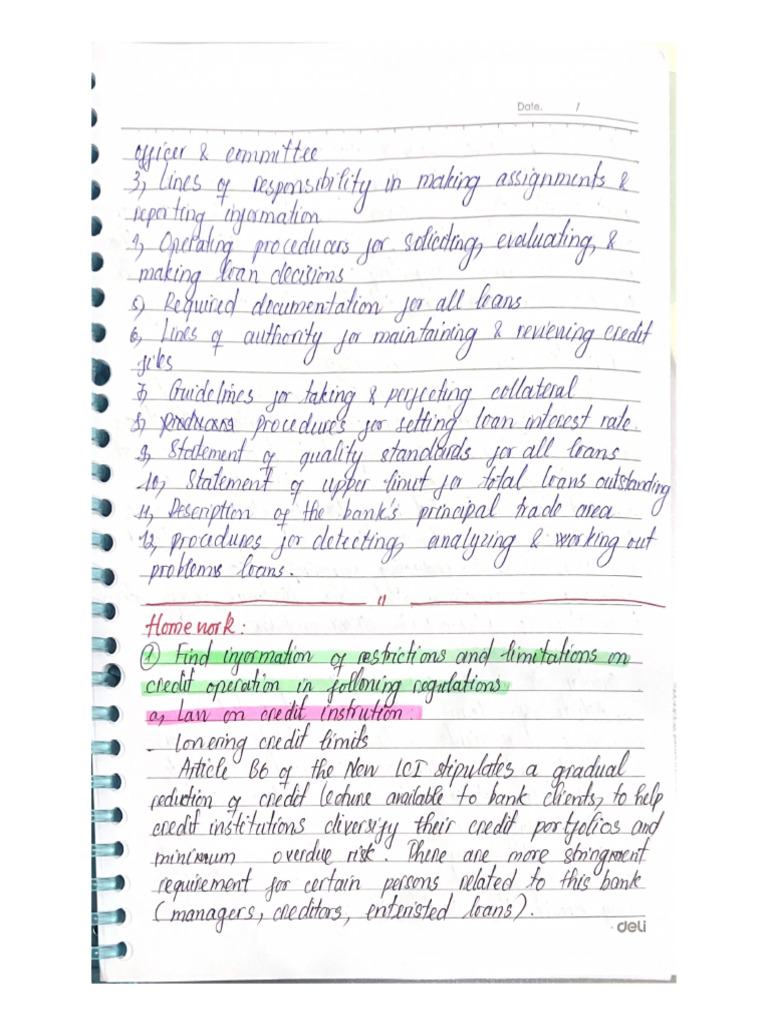 Date. /
officer & committee
3, Lines of responsibility in making assignments &
reporting information
4, Operating proceducers for soliciting, evaluating, &
making loan decisions
5, Required documentation for all loans
6, Lines of authority for maintaining & reviewing credit
files
7, Guidelines for taking & perfecting collateral
8, procedures for setting loan interest rate
9, Statement of quality standards for all loans
10, Statement of upper limit for total loans outstanding
11, Description of the bank's principal trade area
12, procedures for detecting, analyzing & working out
problems loans.
Homework:
① Find information of restrictions and limitations on
credit operation in following regulations
a, Law on credit instrution:
- lowering credit limits
Article 136 of the New LCI stipulates a gradual
reduction of credit available to bank clients, to help
credit institutions diversify their credit portfolios and
minimum overdue risk. There are more stringment
requirement for certain persons related to this bank
(managers, creditors, enteristed loans).
deli